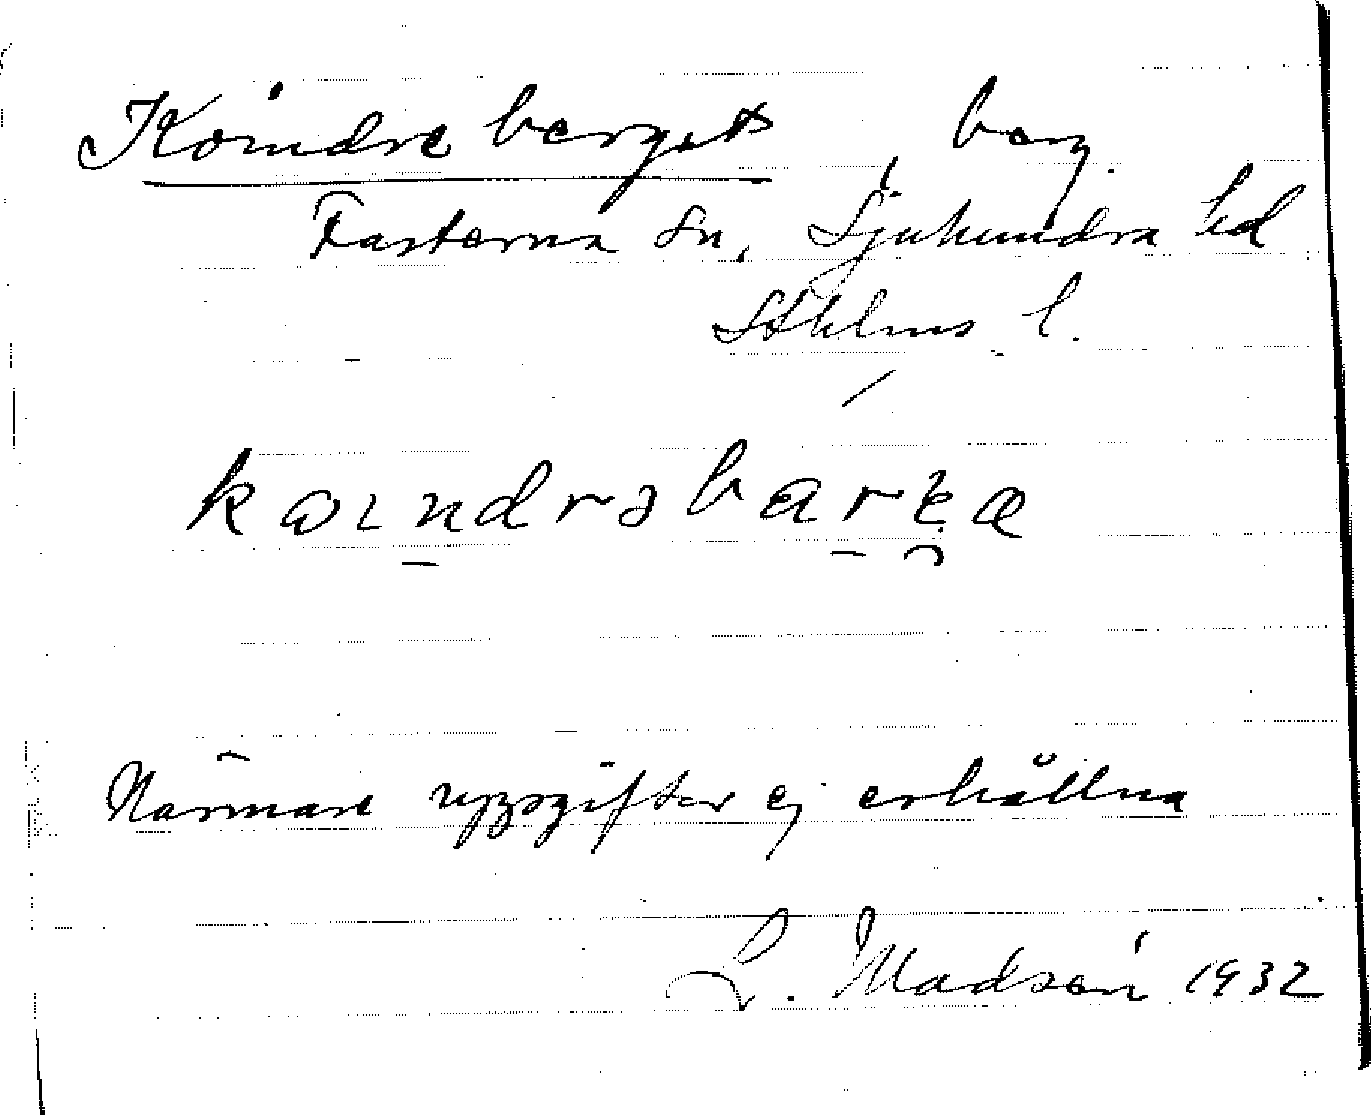 Koindreberget, berg.
Fasterna sn, Sjuhundra hd
Sthlms l.
koindrəbærɡæ
Närmare uppgifter ej erhållna
L. Madsén 1932